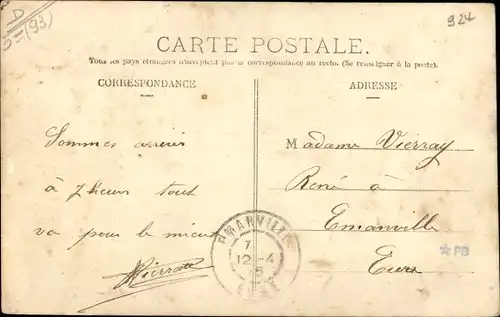 D
(93)
924
CARTE POSTALE.
Tous les pays étrangers n'acceptent pas la correspondance au recto. (Se renseigner à la poste).
CORRESPONDANCE
ADRESSE
Sommes arrivés
à 7 heures tout
va pour le mieux
Madame Vierray
René à
Emanville
Eure
EMANVILLE
7
12-4
15
EURE
PB